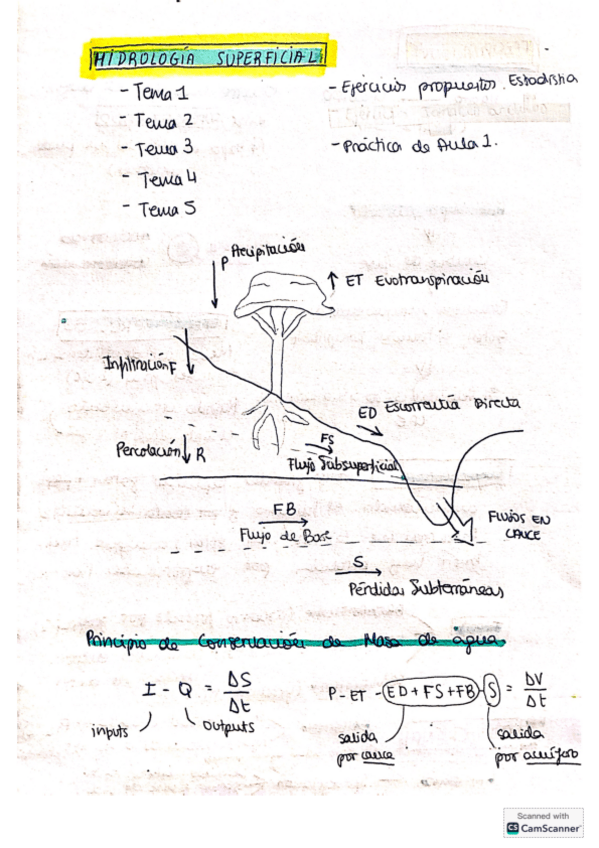 HIDROLOGÍA SUPERFICIAL:
- Tema 1
- Tema 2
- Tema 3
- Tema 4
- Tema 5
- Ejercicios propuestos. Estadística
- Práctica de Aula 1.
P Precipitación
ET Evotranspiración
Infiltración F
ED Escorrentía Directa
FS
Flujo Subsuperficial
Percolación R
FB
Flujo de Base
FLUJOS EN
CAUCE
S
Pérdidas Subterráneas
Principio de Conservación de Masa de agua.
I - Q = ΔS/Δt
inputs
outputs
P - ET - (ED + FS + FB) - S = ΔV/Δt
salida
por cauce
salida
por acuífero
Scanned with
CS CamScanner